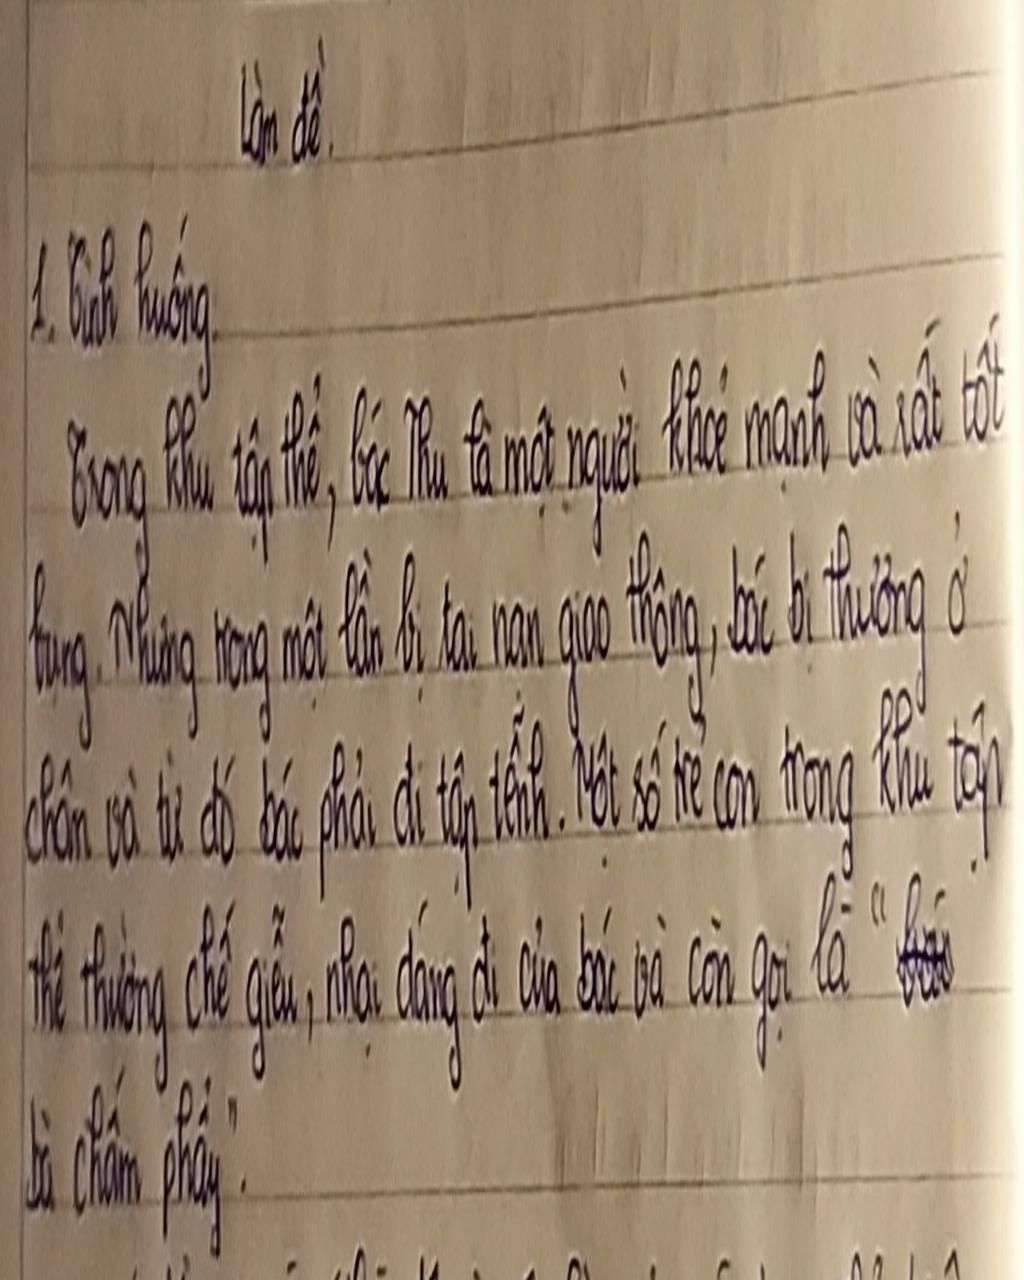 Làm đề.
1. Tình huống.
Trong khu tập thể, bác Thu là một người khoẻ mạnh và rất tốt
bụng. Nhưng trong một lần bị tai nạn giao thông, bác bị thương ở
chân và từ đó bác phải đi tập tễnh. Một số trẻ con trong khu tập
thể thường chế giễu, nhại dáng đi của bác và còn gọi là "
bà chấm phẩy".